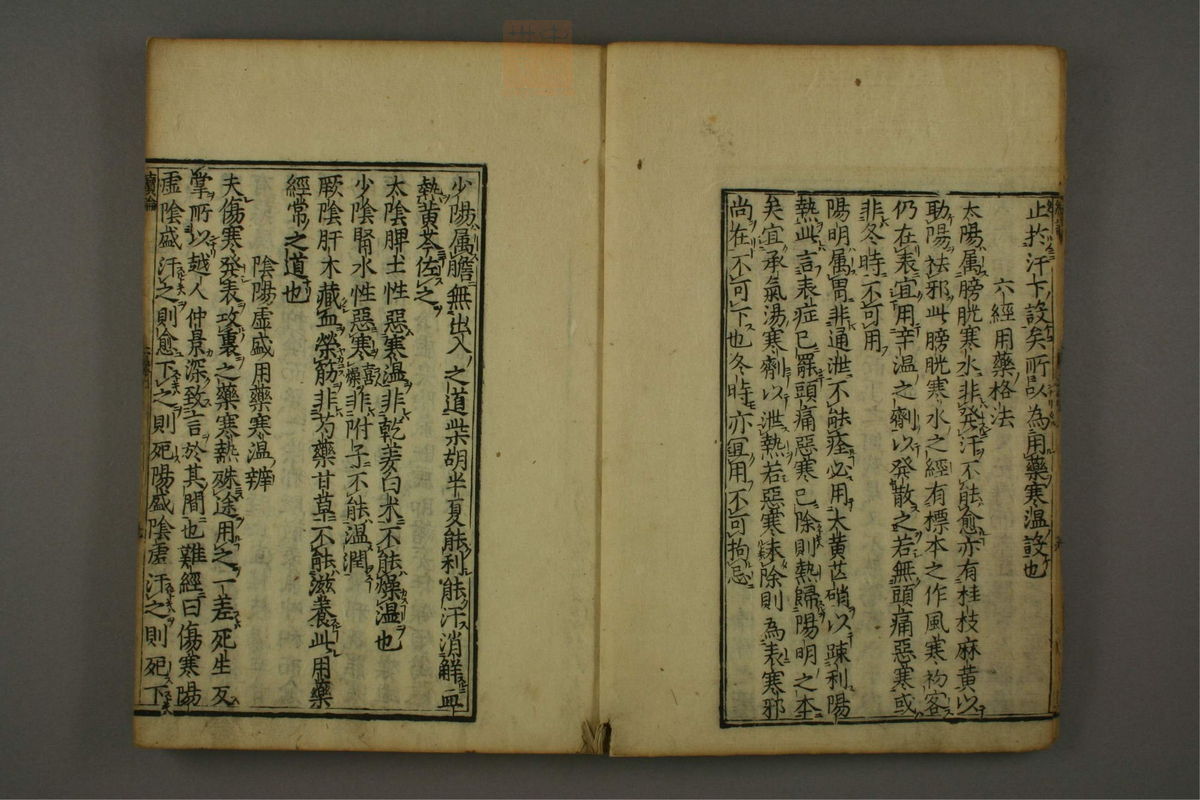 止於汗下設矣所以為用藥寒温設也
六經用藥格法
太陽属膀胱寒水非発汗不能愈亦有桂枝麻黄以
助陽祛邪此膀胱寒水之經有標本之作風寒初客
仍在表宜用辛温之劑以発散之若無頭痛惡寒或
非冬時不可用
陽明属胃非通泄不能痊必用大黄芒硝以踈利陽
熱此言表症已罷頭痛惡寒已除則熱歸陽明之本
矣宜承氣湯寒劑以泄熱若惡寒未除則為表寒邪
尚在不可下也冬時亦宜用不可拘忌
少陽属膽無出入之道柴胡半夏能利能汗消解血
熱黄芩佐之
太陰脾土性惡寒温非乾姜白朮不能燥温也
少陰腎水性惡寒喜燥非附子不能温潤
厥陰肝木藏血榮筋非芍藥甘草不能滋養此用藥
經常之道也
陰陽虚盛用藥寒温辨
夫傷寒発表攻裏之藥寒熱殊途用之一差死生反
掌所以越人仲景深致言於其間也難經曰傷寒陽
虚陰盛汗之則愈下之則死陽盛陰虚汗之則死下